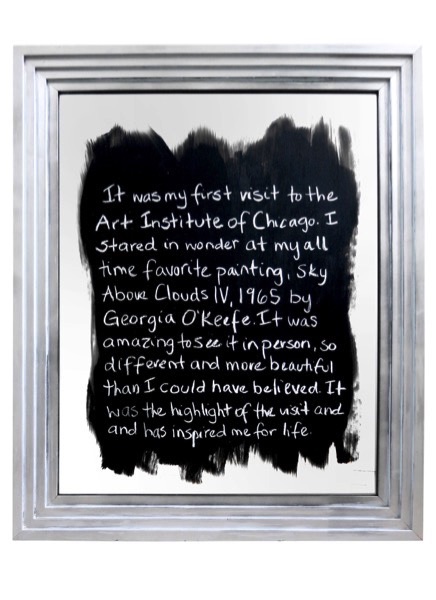 It was my first visit to the
Art Institute of Chicago. I
stared in wonder at my all
time favorite painting, Sky
Above Clouds IV, 1965 by
Georgia O'Keefe. It was
amazing to see it in person, so
different and more beautiful
than I could have believed. It
was the highlight of the visit and
and has inspired me for life.